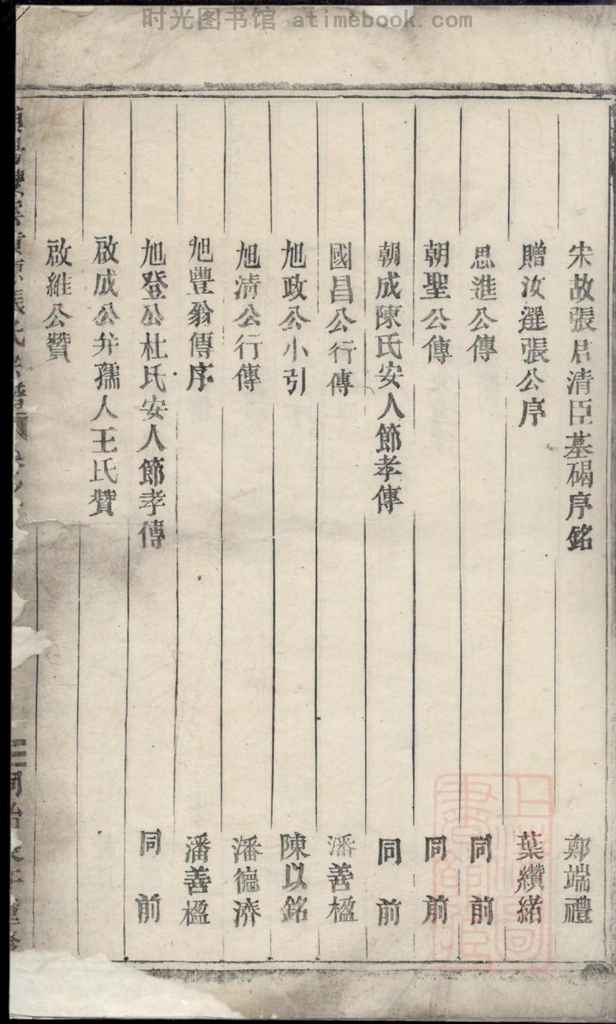 时光图书馆 atimebook.com
宋故張君清臣墓碣序銘 鄭端禮
贈汝選張公序 葉纘緒
思進公傳 同前
朝聖公傳 同前
朝成陳氏安人節孝傳 同前
國昌公行傳 潘善楹
旭政公小引 陳以銘
旭清公行傳 潘德濟
旭豐翁傳序 潘善楹
旭登公杜氏安人節孝傳 同前
啟成公并孺人王氏贊
啟維公贊